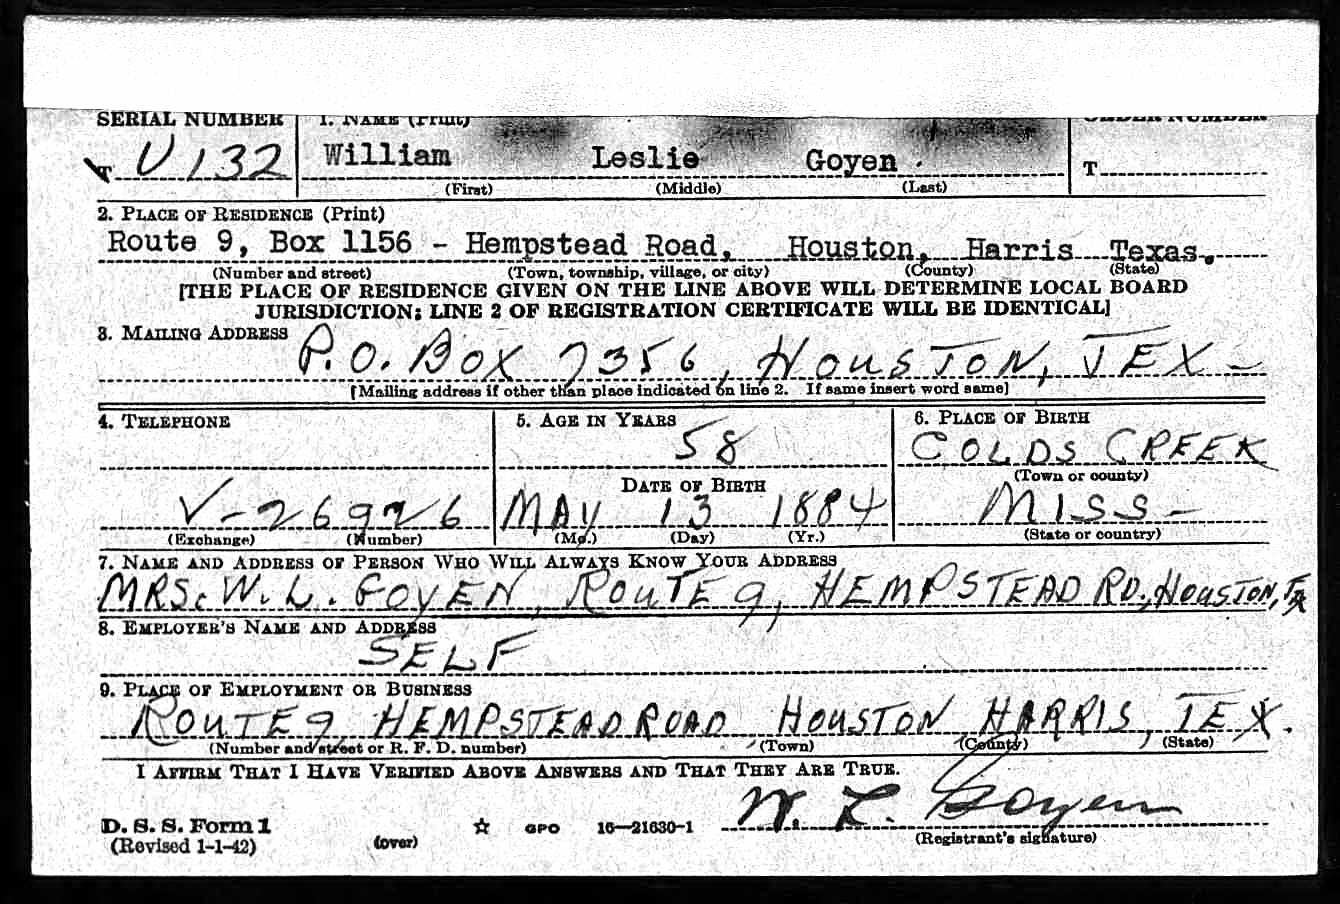 SERIAL NUMBER 1. NAME (Print) ORDER NUMBER
T U 132 William Leslie Goyen T
(First) (Middle) (Last)
2. PLACE OF RESIDENCE (Print)
Route 9, Box 1156 - Hempstead Road, Houston, Harris Texas.
(Number and street) (Town, township, village, or city) (County) (State)
[THE PLACE OF RESIDENCE GIVEN ON THE LINE ABOVE WILL DETERMINE LOCAL BOARD
JURISDICTION; LINE 2 OF REGISTRATION CERTIFICATE WILL BE IDENTICAL]
3. MAILING ADDRESS
P.O. BOX 7356, HOUSTON, TEX -
[Mailing address if other than place indicated on line 2. If same insert word same]
4. TELEPHONE 5. AGE IN YEARS 6. PLACE OF BIRTH
58 COLDS CREEK
DATE OF BIRTH (Town or county)
V-26926 MAY 13 1884 MISS-
(Exchange) (Number) (Mo.) (Day) (Yr.) (State or country)
7. NAME AND ADDRESS OF PERSON WHO WILL ALWAYS KNOW YOUR ADDRESS
MRS. W. L. GOYEN, ROUTE 9, HEMPSTEAD RD., HOUSTON, TEX
8. EMPLOYER'S NAME AND ADDRESS
SELF
9. PLACE OF EMPLOYMENT OR BUSINESS
ROUTE 9, HEMPSTEAD ROAD HOUSTON HARRIS, TEX.
(Number and street or R. F. D. number) (Town) (County) (State)
I AFFIRM THAT I HAVE VERIFIED ABOVE ANSWERS AND THAT THEY ARE TRUE.
W. L. Goyen
D. S. S. Form 1 (over) ☆ GPO 16—21630-1 (Registrant's signature)
(Revised 1-1-42)